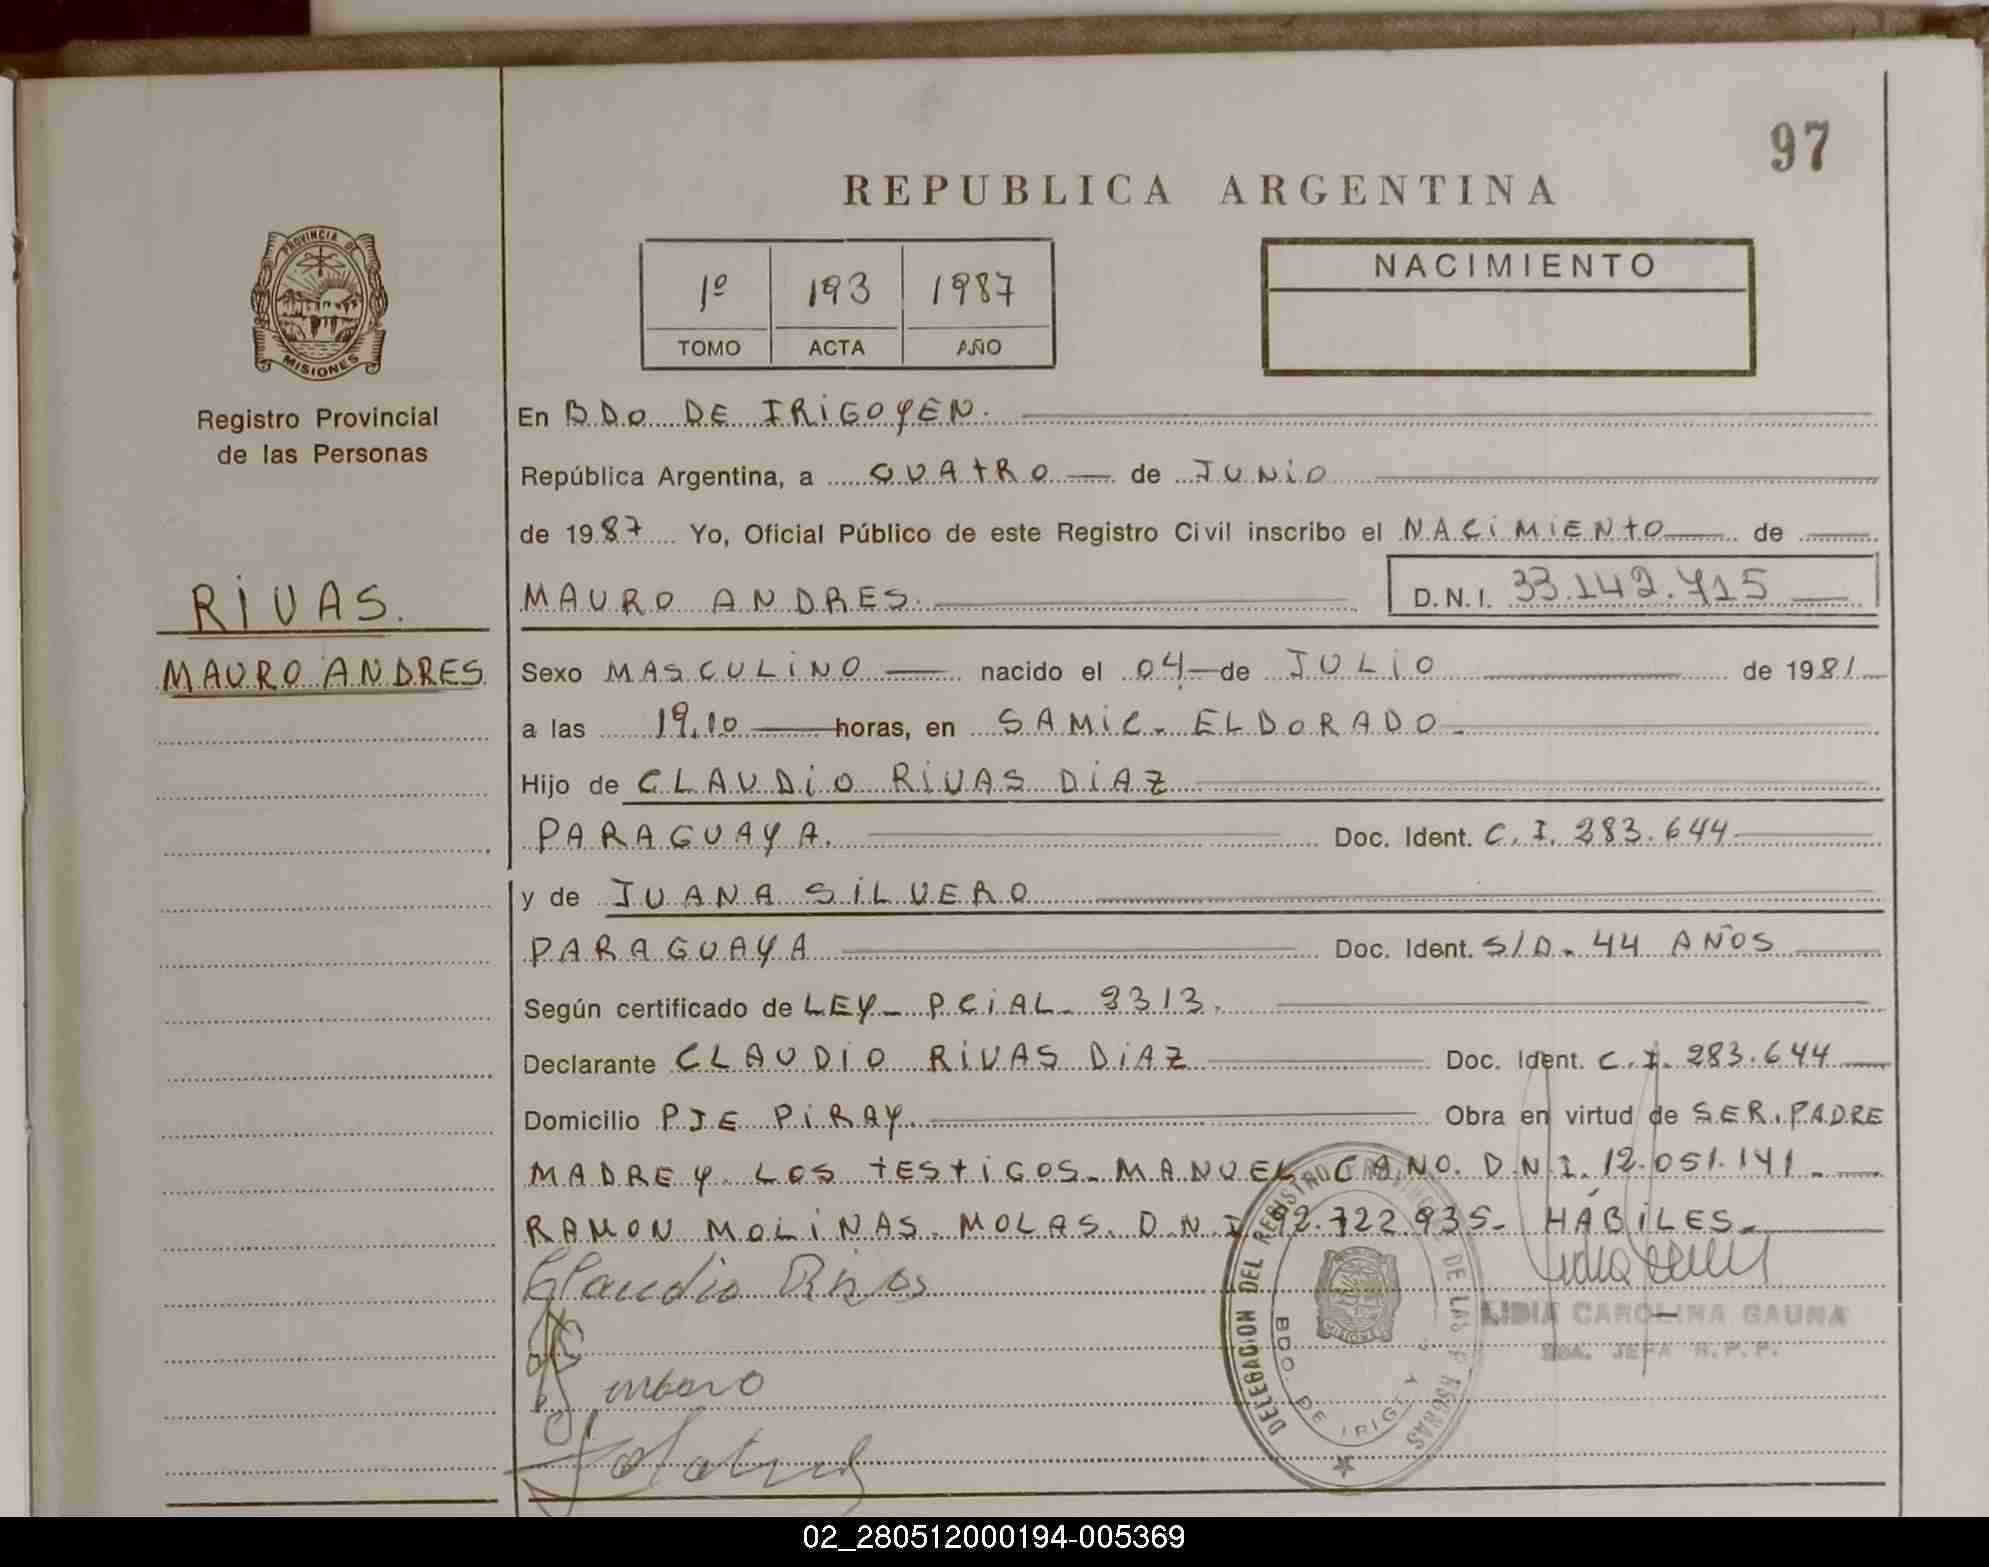 97
REPUBLICA ARGENTINA
PROVINCIA DE
MISIONES
Registro Provincial
de las Personas
1º 193 1987
TOMO ACTA AÑO
NACIMIENTO
En BDO DE IRIGOYEN.
República Argentina, a CUATRO de JUNIO
de 1987 Yo, Oficial Público de este Registro Civil inscribo el NACIMIENTO de
RIVAS.
MAURO ANDRES
MAURO ANDRES. D.N.I. 33.142.715
Sexo MASCULINO nacido el 04 de JULIO de 1981
a las 19,10 horas, en SAMIC - ELDORADO
Hijo de CLAUDIO RIVAS DIAZ
PARAGUAYA. Doc. Ident. C.I. 283.644
y de JUANA SILVERO
PARAGUAYA Doc. Ident. S/D - 44 AÑOS
Según certificado de LEY - PCIAL - 2313.
Declarante CLAUDIO RIVAS DIAZ Doc. Ident. C.I. 283.644
Domicilio PJE PIRAY. Obra en virtud de SER. PADRE
MADRE Y LOS TESTIGOS - MANUEL CANO. D.N.I. 12.051.141 -
RAMON MOLINAS. MOLAS. D.N.I 92.722.935 - HÁBILES -
Claudio Rivas
DELEGACION DEL REGISTRO PROVINCIAL DE LAS PERSONAS
BDO. DE IRIGOYEN
MISIONES
LIDIA CAROLINA GAUNA
JEFA R.P.P.
02_280512000194-005369